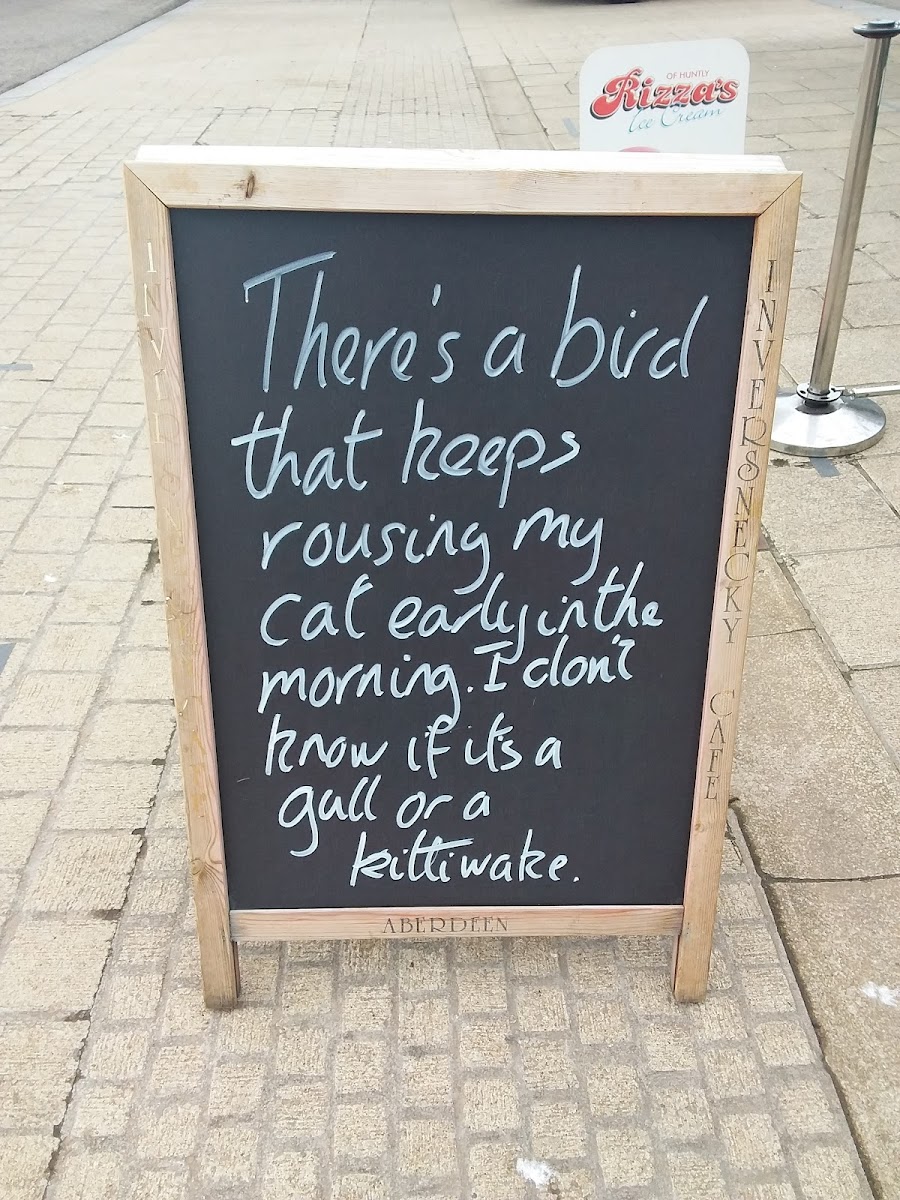 OF HUNTLY
Rizza's
Ice Cream
There's a bird
that keeps
rousing my
cat early in the
morning. I don't
know if it's a
gull or a
kittiwake.
INVERSNECKY CAFE
ABERDEEN